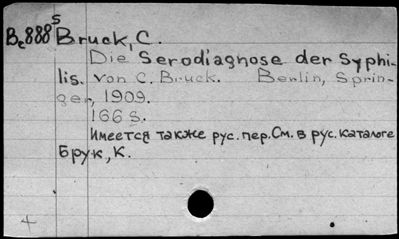 Bc888 S Bruck, C.
Die Serodiagnose der Syphi-
lis. von C. Bruck. Berlin, Sprin-
ger, 1909.
166 S.
Имеется также рус. пер. См. в рус. каталоге
Брук, К.